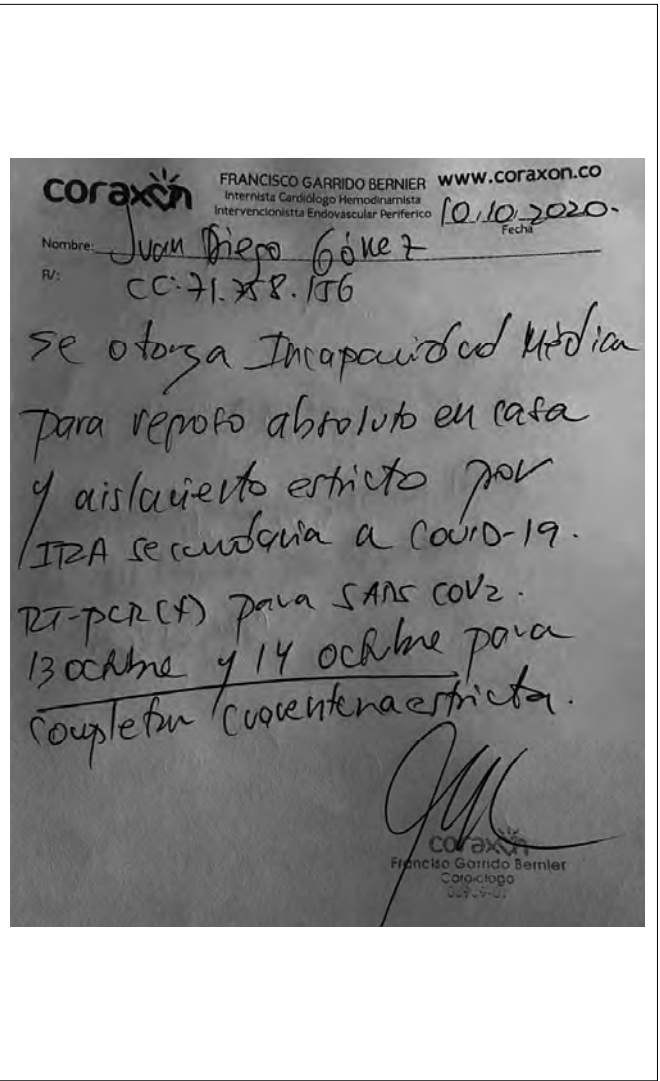 coraxón
FRANCISCO GARRIDO BERNIER
Internista Cardiólogo Hemodinamista
Intervencionistta Endovascular Periferico
www.coraxon.co
10.10.2020.
Fecha
Nombre: Juan Diego Gómez
R/:
CC. 71.758.156
Se otorga Incapacidad Médica
para reposo absoluto en casa
y aislamiento estricto por
IRA secundaria a Covid-19.
RT-PCR(+) para SARS COV2.
13 octubre y 14 octubre para
completar cuarentena estricta.
coraxón
Francisco Garrido Bernier
Cardiologo